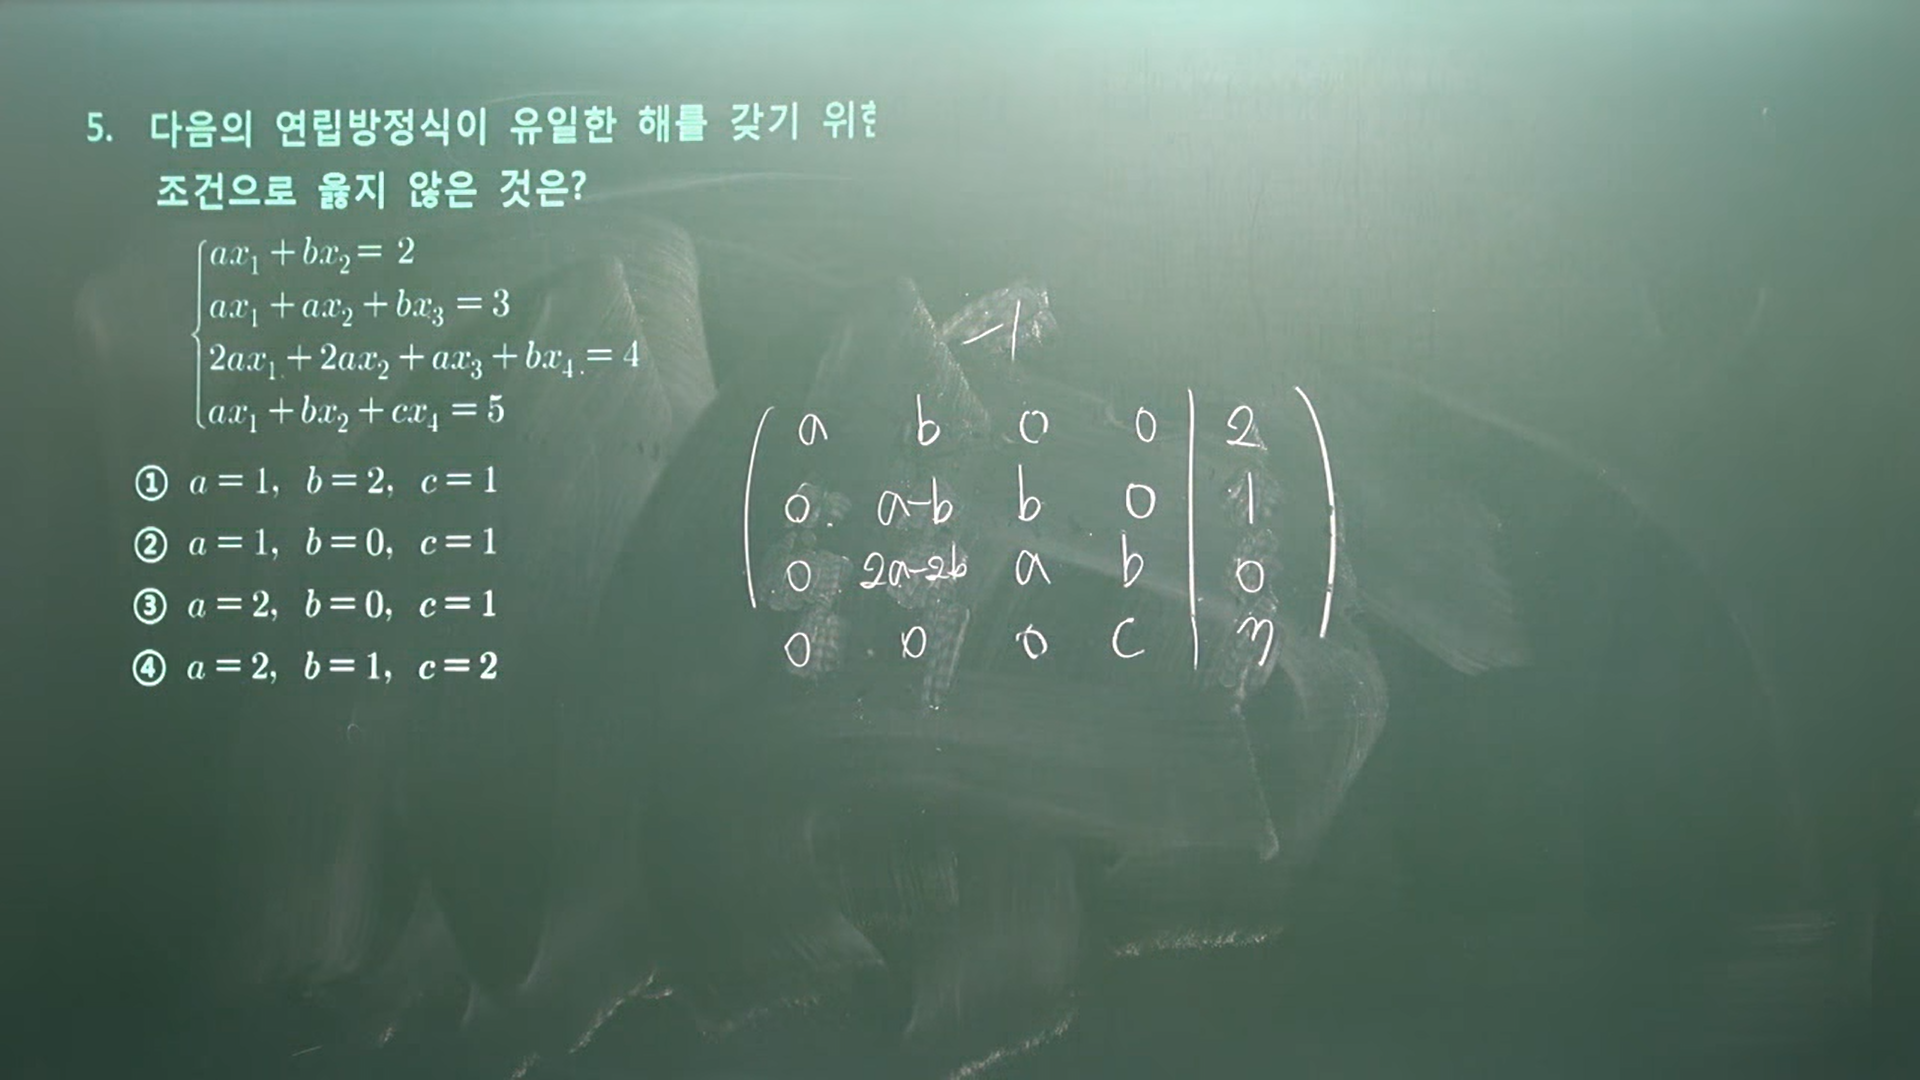 5. 다음의 연립방정식이 유일한 해를 갖기 위한
조건으로 옳지 않은 것은?
ax₁ + bx₂ = 2
ax₁ + ax₂ + bx₃ = 3
2ax₁ + 2ax₂ + ax₃ + bx₄ = 4
ax₁ + bx₂ + cx₄ = 5
① a = 1, b = 2, c = 1
② a = 1, b = 0, c = 1
③ a = 2, b = 0, c = 1
④ a = 2, b = 1, c = 2
-1
a b 0 0 | 2
0 a-b b 0 | 1
0 2a-2b a b | 0
0 0 0 c | 3